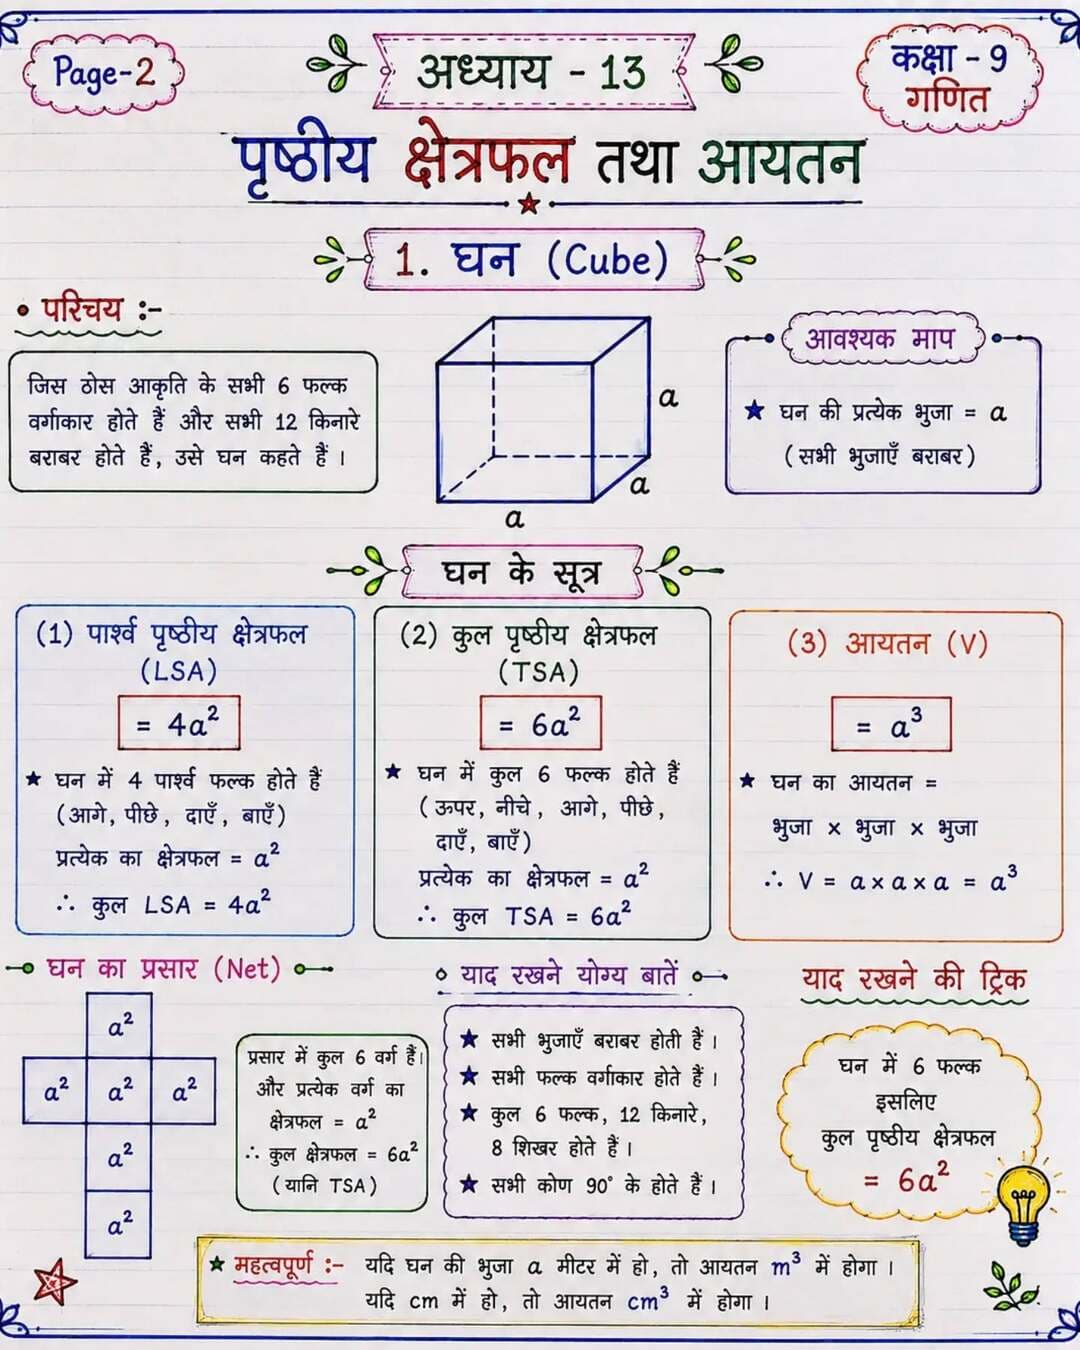 Page-2
अध्याय - 13
कक्षा - 9
गणित
पृष्ठीय क्षेत्रफल तथा आयतन
1. घन (Cube)
• परिचय :-
जिस ठोस आकृति के सभी 6 फल्क
वर्गाकार होते हैं और सभी 12 किनारे
बराबर होते हैं, उसे घन कहते हैं ।
a
a
a
आवश्यक माप
★ घन की प्रत्येक भुजा = a
(सभी भुजाएँ बराबर)
घन के सूत्र
(1) पार्श्व पृष्ठीय क्षेत्रफल
(LSA)
= 4a²
★ घन में 4 पार्श्व फल्क होते हैं
(आगे, पीछे, दाएँ, बाएँ)
प्रत्येक का क्षेत्रफल = a²
∴ कुल LSA = 4a²
(2) कुल पृष्ठीय क्षेत्रफल
(TSA)
= 6a²
★ घन में कुल 6 फल्क होते हैं
(ऊपर, नीचे, आगे, पीछे,
दाएँ, बाएँ)
प्रत्येक का क्षेत्रफल = a²
∴ कुल TSA = 6a²
(3) आयतन (V)
= a³
★ घन का आयतन =
भुजा x भुजा x भुजा
∴ V = a x a x a = a³
घन का प्रसार (Net)
a²
a² a² a²
a²
a²
प्रसार में कुल 6 वर्ग हैं।
और प्रत्येक वर्ग का
क्षेत्रफल = a²
∴ कुल क्षेत्रफल = 6a²
(यानि TSA)
याद रखने योग्य बातें
★ सभी भुजाएँ बराबर होती हैं ।
★ सभी फल्क वर्गाकार होते हैं ।
★ कुल 6 फल्क, 12 किनारे,
8 शिखर होते हैं ।
★ सभी कोण 90° के होते हैं ।
याद रखने की ट्रिक
घन में 6 फल्क
इसलिए
कुल पृष्ठीय क्षेत्रफल
= 6a²
★ महत्वपूर्ण :- यदि घन की भुजा a मीटर में हो, तो आयतन m³ में होगा ।
यदि cm में हो, तो आयतन cm³ में होगा ।